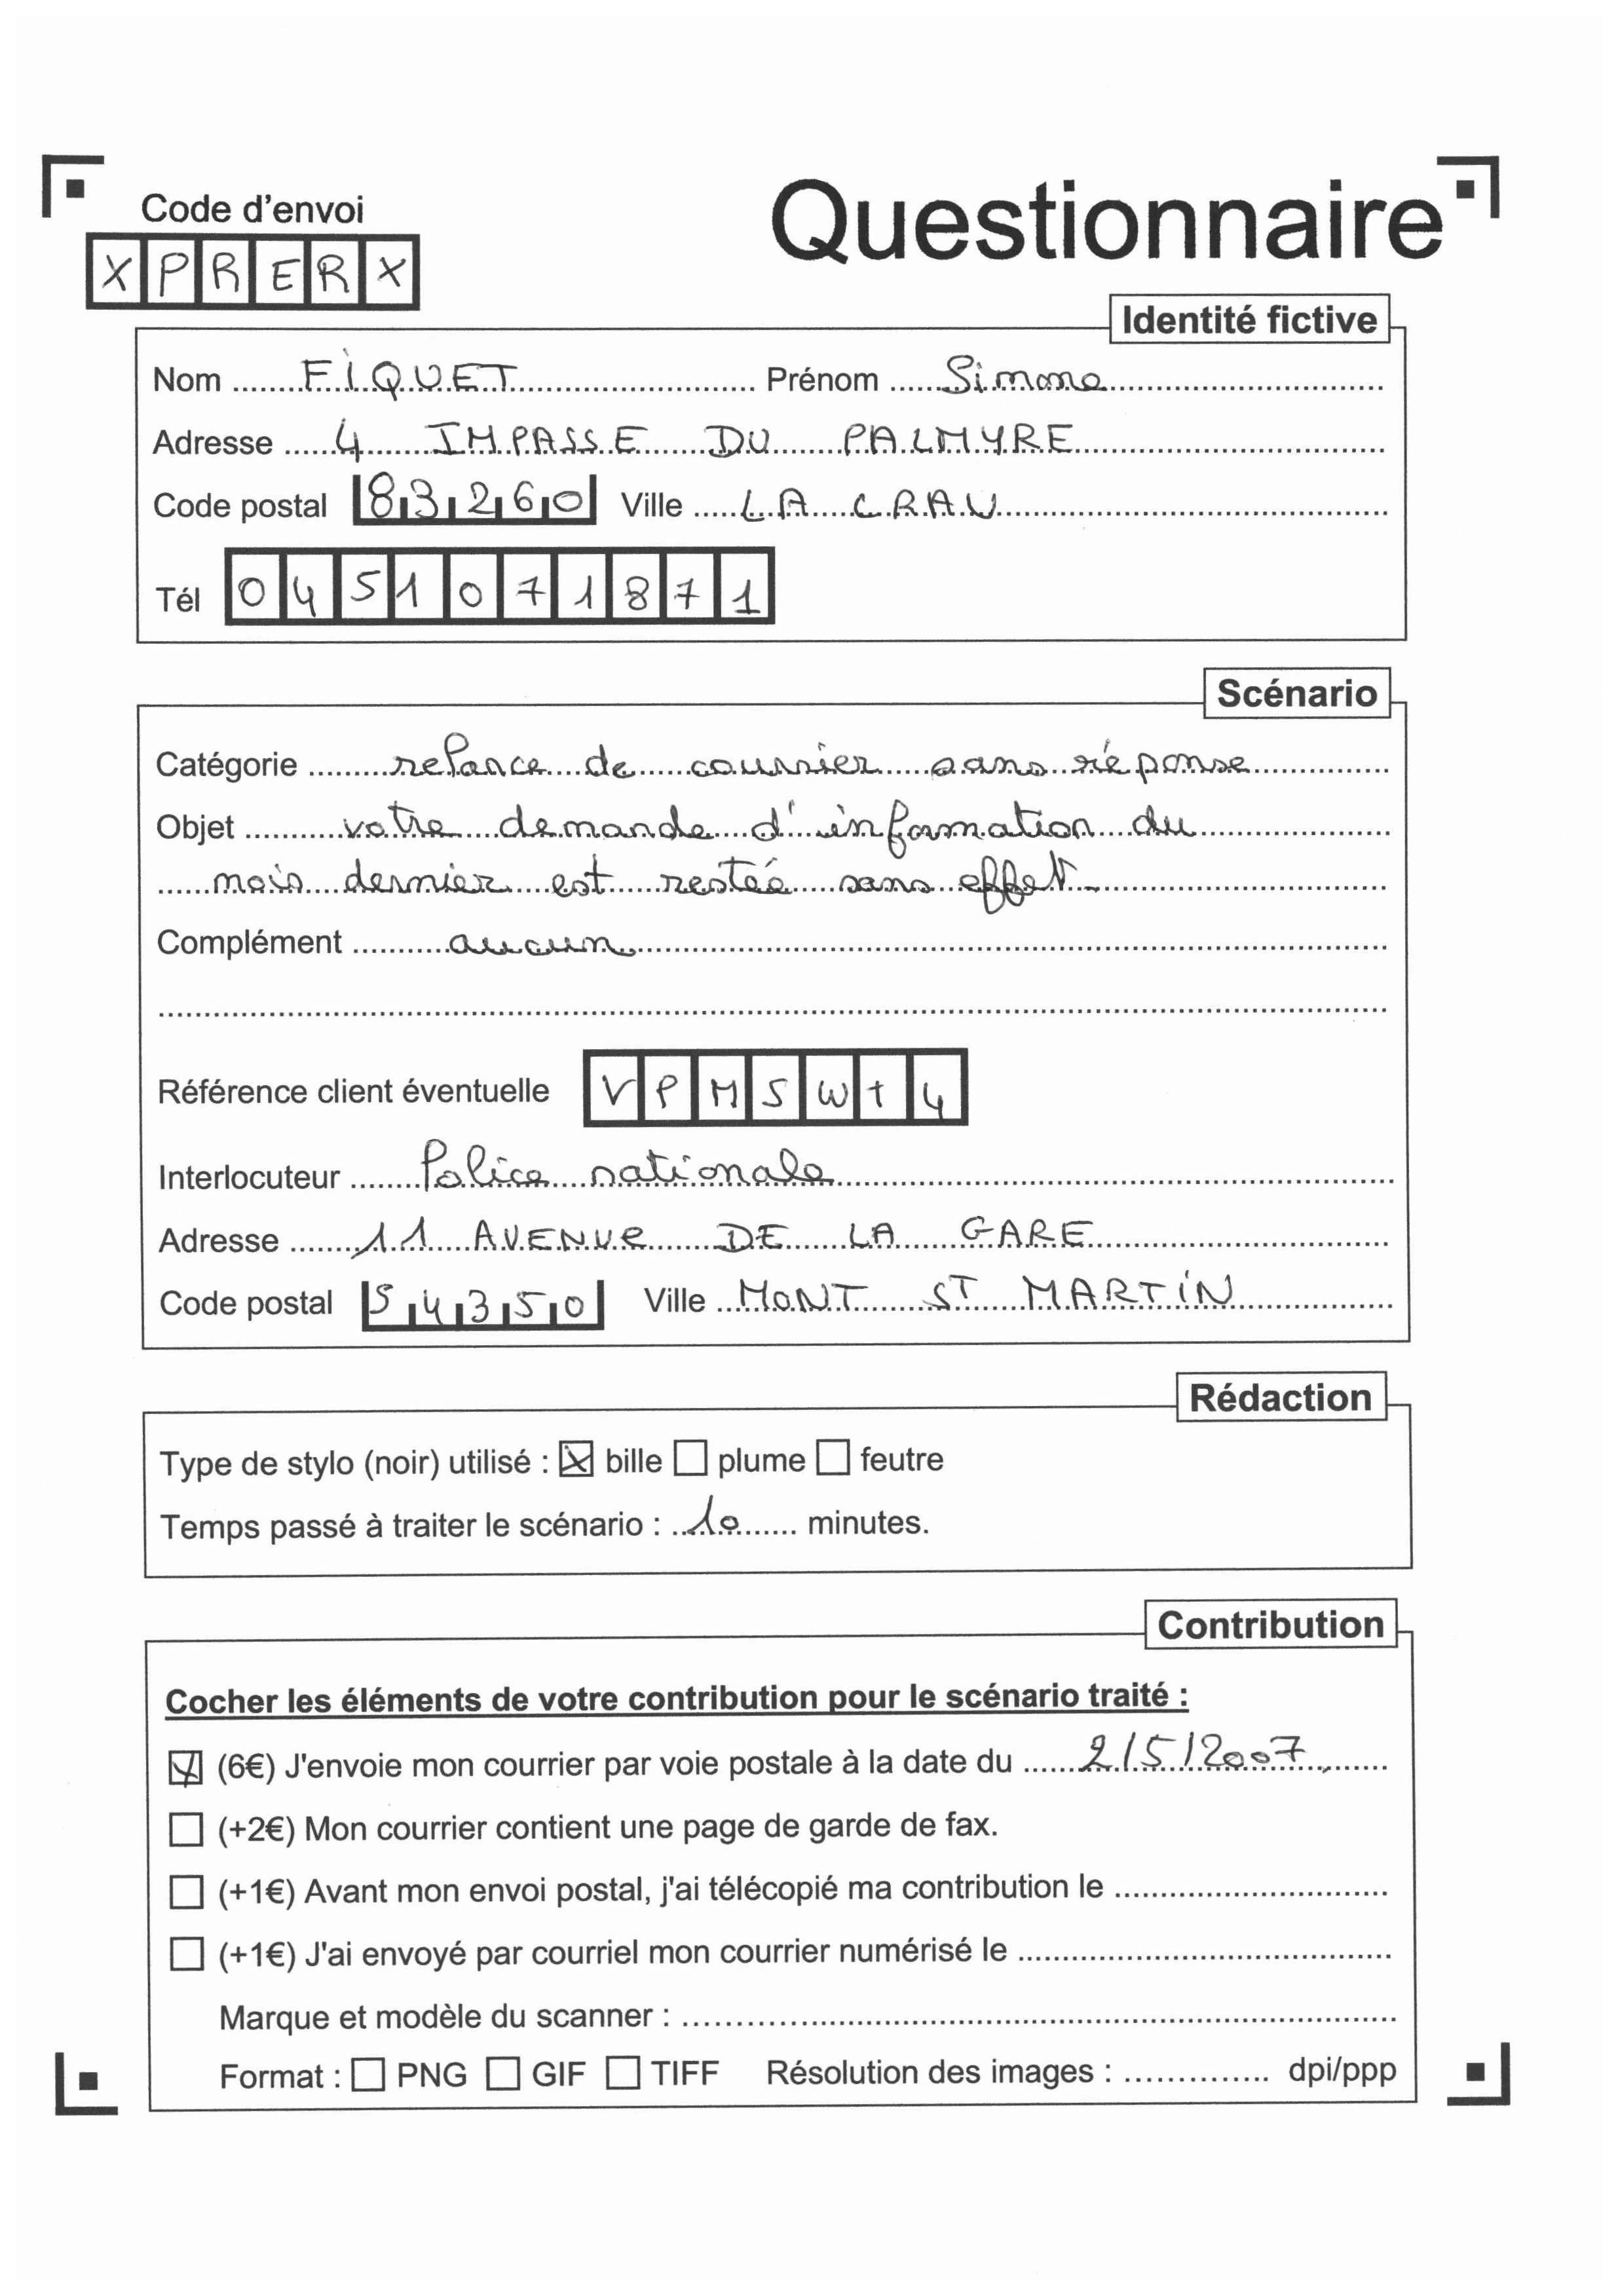 Code d'envoi
Questionnaire
XPRERX
Identité fictive
Nom FIQUET Prénom Simone
Adresse 4 IMPASSE DU PALMYRE
Code postal 83260 Ville LA CRAU
Tél 0451071871
Scénario
Catégorie relance de courrier sans réponse
Objet votre demande d'information du
mois dernier est restée sans effet.
Complément aucun
Référence client éventuelle VPMSWt4
Interlocuteur Police nationale
Adresse 11 AVENUE DE LA GARE
Code postal 54350 Ville MONT ST MARTIN
Rédaction
Type de stylo (noir) utilisé : ☒ bille ☐ plume ☐ feutre
Temps passé à traiter le scénario : 10 minutes.
Contribution
Cocher les éléments de votre contribution pour le scénario traité :
☒ (6€) J'envoie mon courrier par voie postale à la date du 2/5/2007
☐ (+2€) Mon courrier contient une page de garde de fax.
☐ (+1€) Avant mon envoi postal, j'ai télécopié ma contribution le
☐ (+1€) J'ai envoyé par courriel mon courrier numérisé le
Marque et modèle du scanner :
Format : ☐ PNG ☐ GIF ☐ TIFF Résolution des images : dpi/ppp